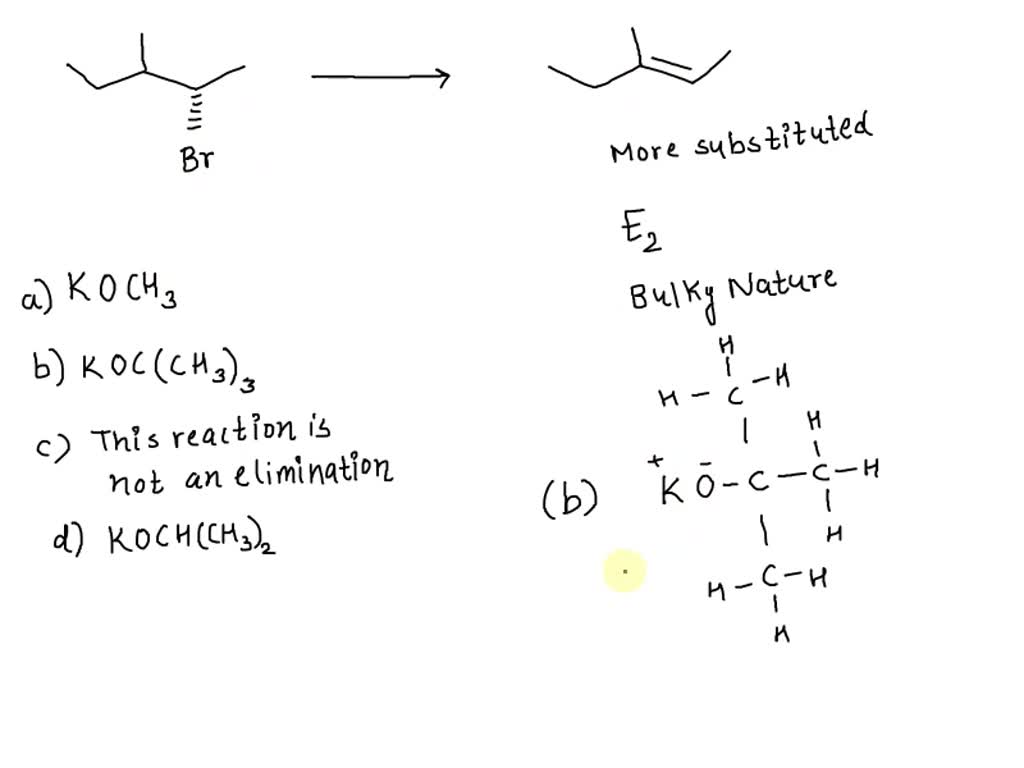 Br
More substituted
E2
Bulky Nature
a) KOCH3
b) KOC(CH3)3
c) This reaction is
not an elimination
d) KOCH(CH3)2
(b)
H
H - C - H
H
+ -
K O - C - C - H
H
H - C - H
H